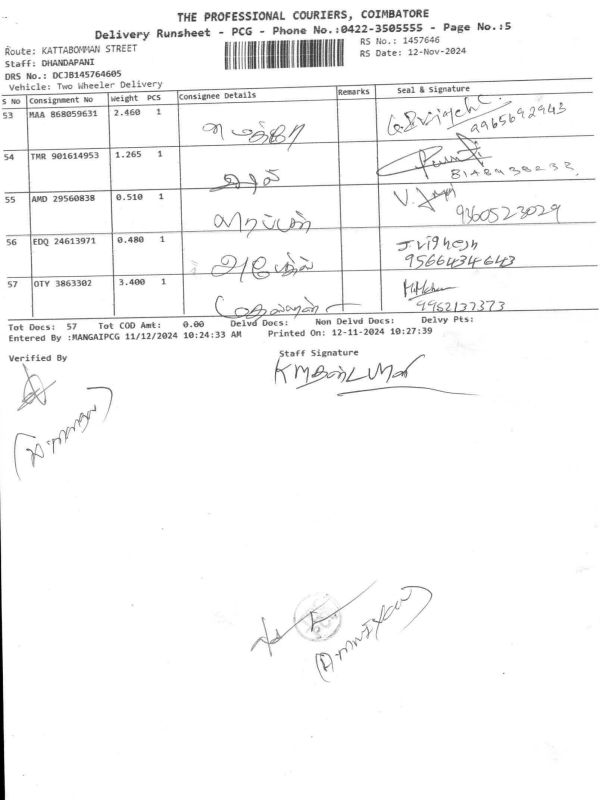 THE PROFESSIONAL COURIERS, COIMBATORE
Delivery Runsheet - PCG - Phone No.:0422-3505555 - Page No.:5
Route: KATTABOMMAN STREET
RS No.: 1457646
Staff: DHANDAPANI
RS Date: 12-Nov-2024
DRS No.: DCJB145764605
Vehicle: Two Wheeler Delivery
S No Consignment No Weight PCS Consignee Details Remarks Seal & Signature
53 MAA 868059631 2.460 1
9965692943
54 TMR 901614953 1.265 1
8142938233
55 AMD 29560838 0.510 1
9360523029
56 EDQ 24613971 0.480 1 J. Vighesh
9566434643
57 OTY 3863302 3.400 1
9952137373
Tot Docs: 57 Tot COD Amt: 0.00 Delvd Docs: Non Delvd Docs: Delvy Pts:
Entered By :MANGAIPCG 11/12/2024 10:24:33 AM Printed On: 12-11-2024 10:27:39
Verified By
Staff Signature